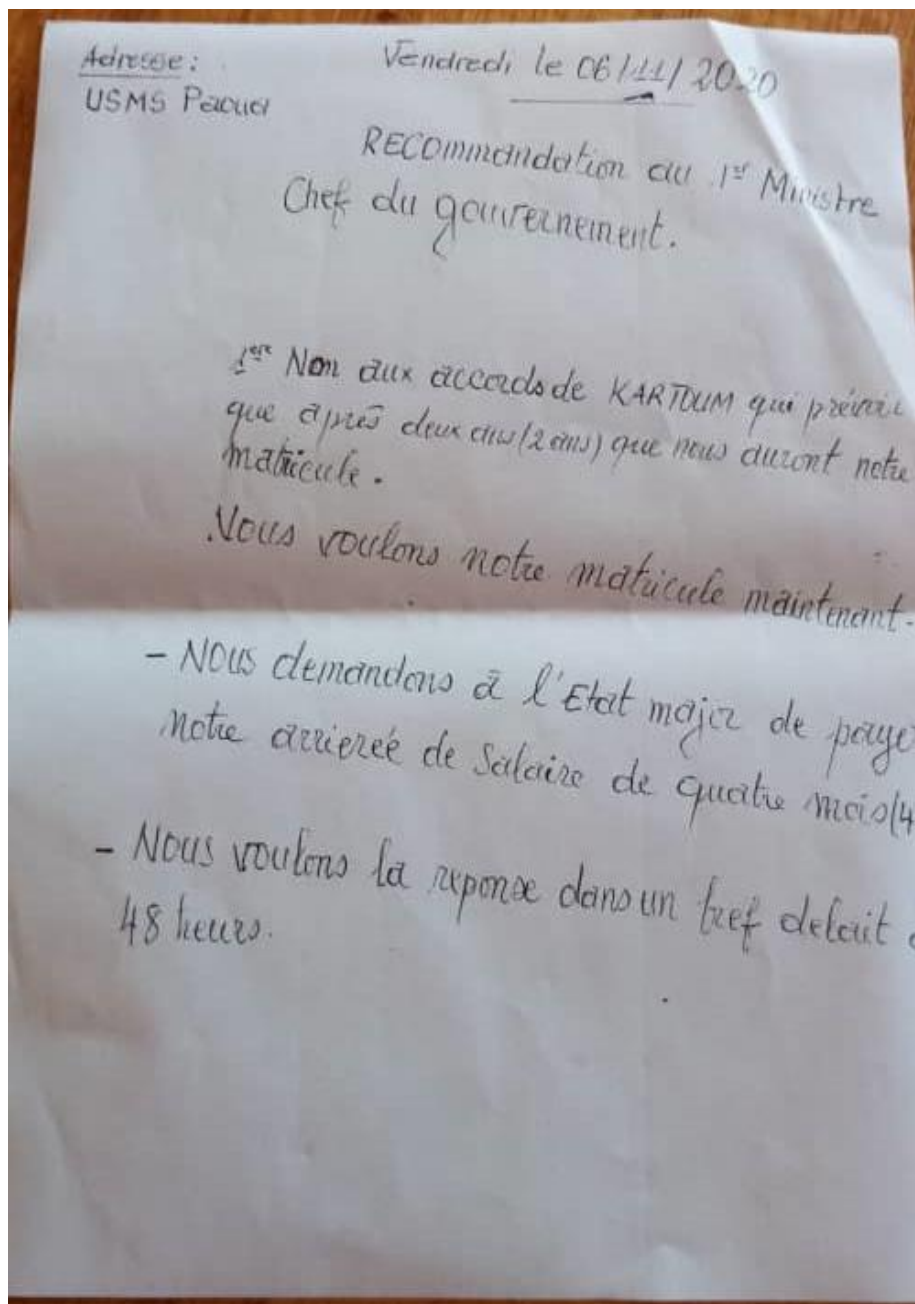 Adresse :
Vendredi le 06/11/2020
USMS Paoua
RECommandation au 1er Ministre
Chef du gouvernement.
1ere Non aux accords de KARTOUM qui prévoit
que après deux ans (2 ans) que nous auront notre
matricule.
Nous voulons notre matricule maintenant.
- Nous demandons à l'Etat major de paye
notre arriereé de salaire de quatre mois (4
- Nous voulons la reponse dans un bref delait
48 heures.